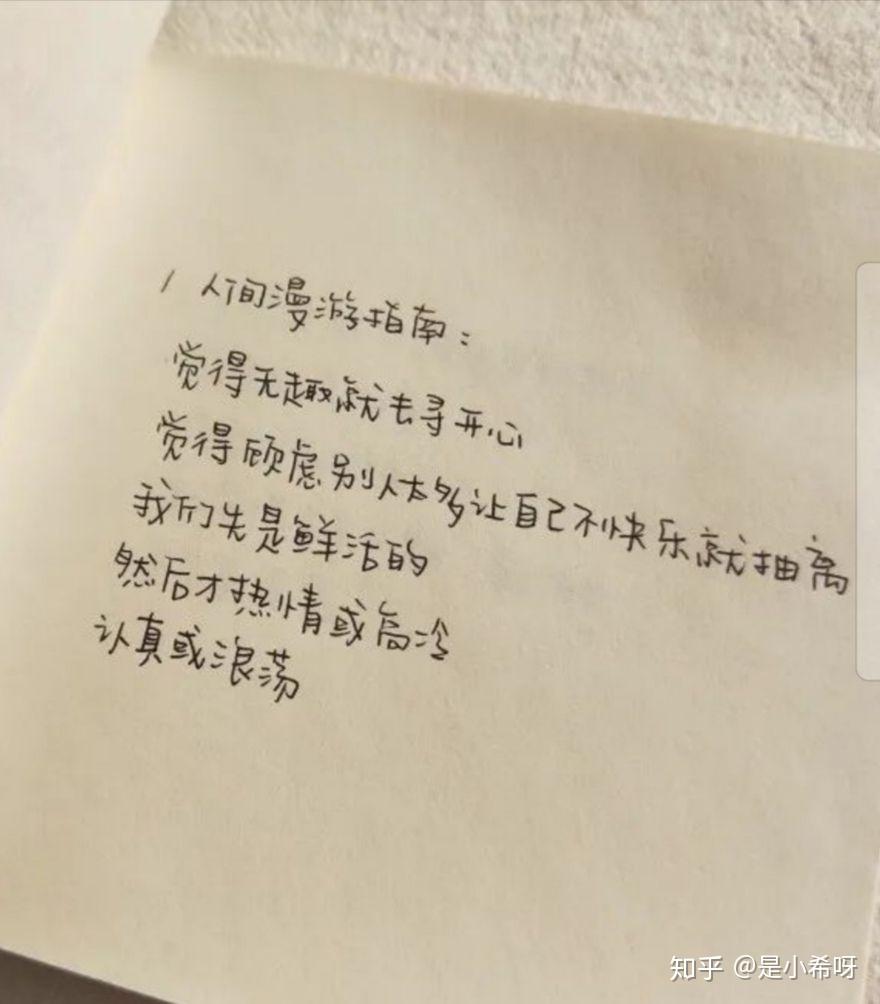 / 人间漫游指南：
觉得无趣就去寻开心
觉得顾虑别人太多让自己不快乐就抽离
我们先是鲜活的
然后才热情或高冷
认真或浪荡
知乎 @是小希呀